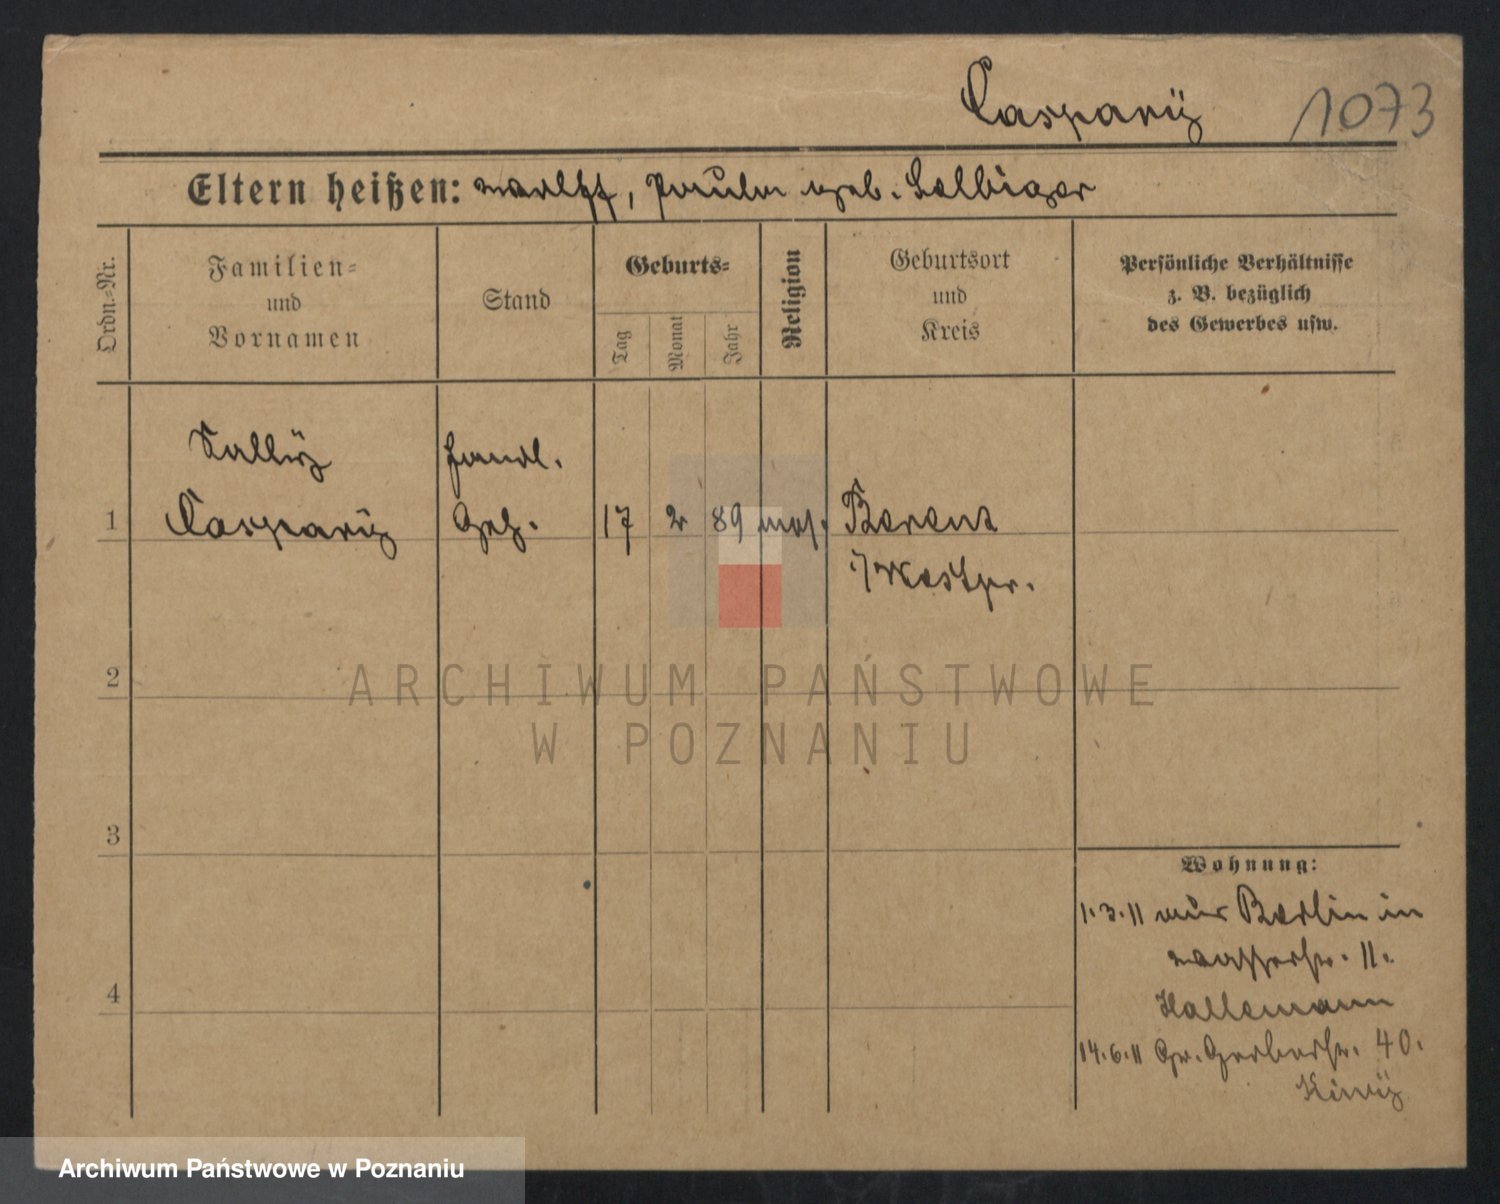 Caspary 1073
Eltern heißen: Wolff, Paula geb. Selbiger
Ordn.-Nr.
Familien-
und
Vornamen
Stand
Geburts-
Tag
Monat
Jahr
Religion
Geburtsort
und
Kreis
Persönliche Verhältnisse
z. B. bezüglich
des Gewerbes usw.
Sally Handl.
1 Caspary Geh. 17 2 89 mos. Berent
i/Westpr.
2
3
4
Wohnung:
1.3.11 aus Berlin in
Wasserstr. 11.
Hallemann
14.6.11 Gr. Gerberstr. 40.
ARCHIWUM PAŃSTWOWE
W POZNANIU
Archiwum Państwowe w Poznaniu